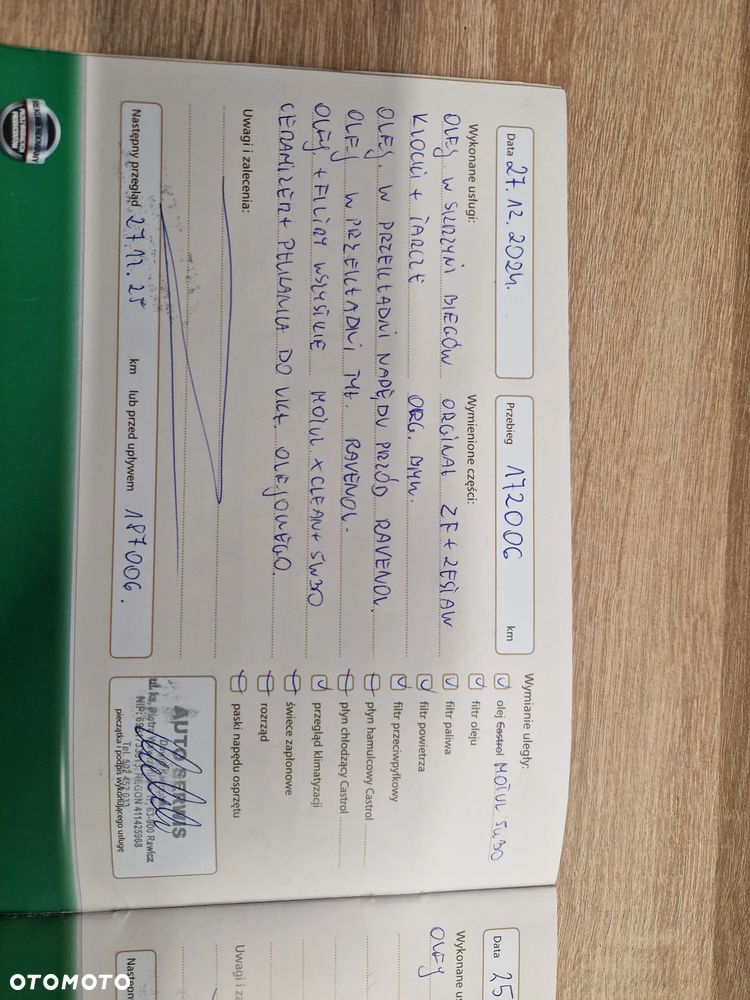 Data 27.12.2024.
Przebieg 172006 km
Wykonane usługi: Wymienione części:
OLEJ W SKRZYNI BIEGÓW ORGINAŁ ZF + ZESTAW
KLOCKI + TARCZE ORG. BMW.
OLEJ W PRZEKŁADNI NAPĘDU PRZÓD RAVENOL.
OLEJ W PRZEKŁADNI TYŁ. RAVENOL.
OLEJ + FILTRY WSZYSTKIE MOTUL XCLEAN+ 5W30
CERAMIZER + PŁUKANKA DO UKŁ. OLEJOWEGO.
Uwagi i zalecenia:
Następny przegląd 27.12.25 km lub przed upływem 187006.
Wymianie uległy:
olej Castrol MOTUL 5W30
filtr oleju
filtr paliwa
filtr powietrza
filtr przeciwpyłkowy
płyn hamulcowy Castrol
płyn chłodzący Castrol
przegląd klimatyzacji
świece zapłonowe
rozrząd
paski napędu osprzętu
AUTO SERWIS
63-900 Rawicz
REGON 411425968
Tel. 502 452 033
pieczątka i podpis wykonującego usługę
Data 25
Wykonane us
OLEJ
Uwagi i za
Następn
OTOMOTO